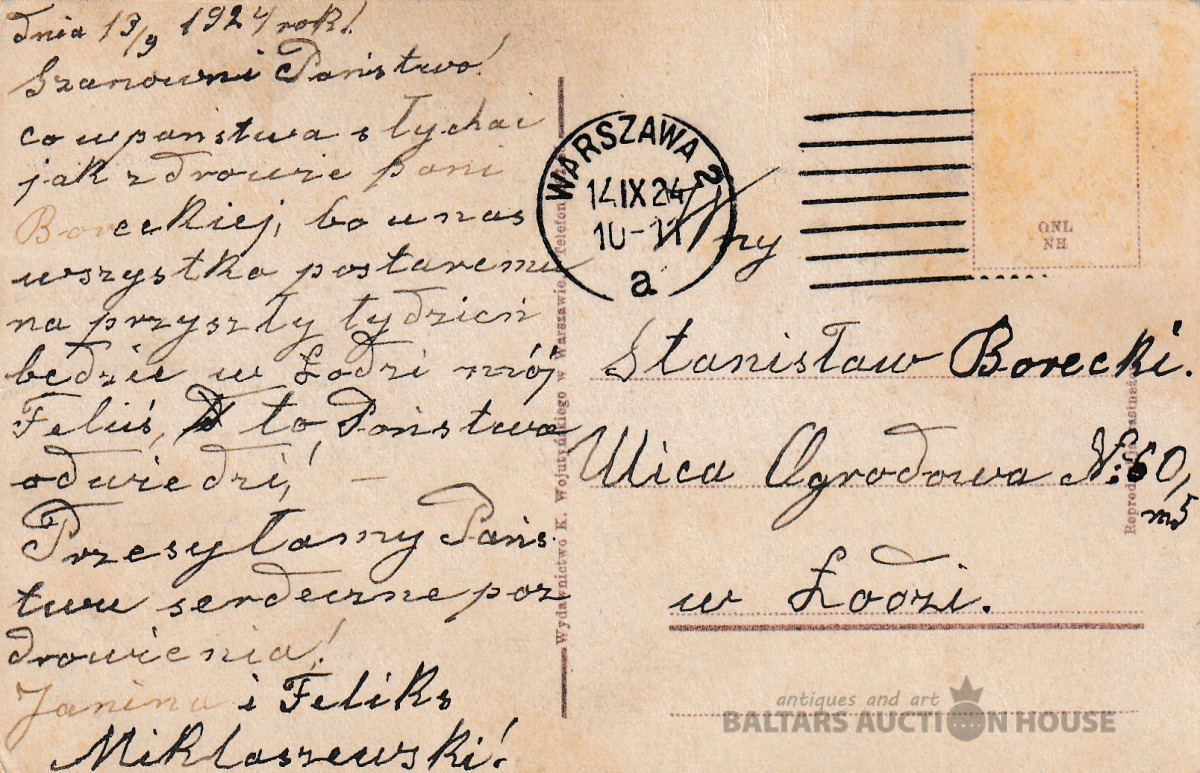 dnia 13/9 1924 rok!
Szanowni Państwo!
co w państwa słychać
jak zdrowie pani
Boreckiej, bo u nas
wszystko postaremu
na przyszły tydzień
będzie w Łodzi mój
Feluś, to Państwa
odwiedzi! —
Przesyłamy Pańs-
twu serdeczne poz
drowienia!
Janina i Feliks
Mikłaszewski!
Wydawnictwo K. Wojutyńskiego w Warszawie, Telefon
WARSZAWA 2
14 IX 24
10-11
a
W ny
QNL
NH
Stanisław Borecki.
Ulica Ogrodowa N: 60,
m 5
w Łodzi.
antiques and art
BALTARS AUCTION HOUSE